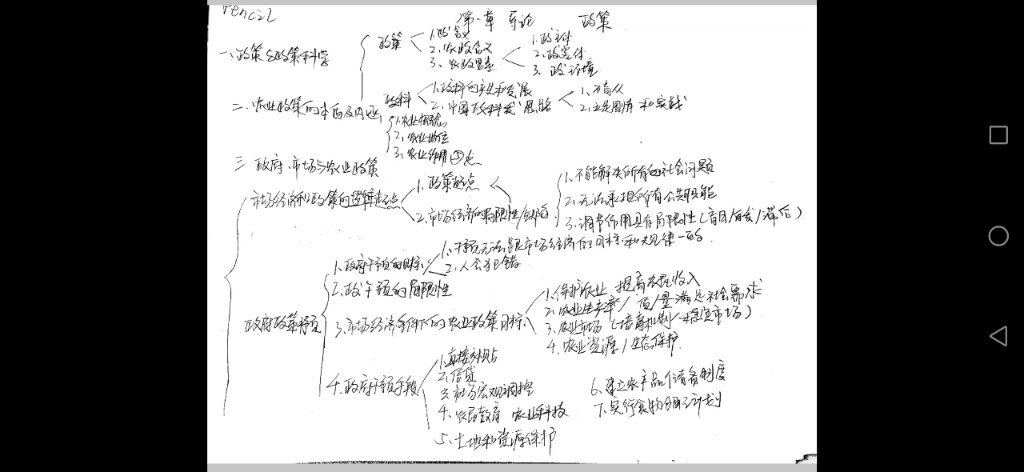 Pencil
第一章 导论 政策
一、政策与政策科学
政策
1. 政含义
2. 农政含义
3. 农政要素
1. 政主体
2. 政客体
3. 政环境
政科
1. 政科的产生和发展
2. 中国政科发展
2. 立足国情和实践
二、农业政策的本质及内涵
1. 农业概念
2. 农业地位
3. 农业作用
三 政府、市场与农业政策
市场经济和政策的逻辑起点
1. 政策起点
2. 市场经济的局限性/缺陷
1. 不能解决所有的社会问题
2. 无法承担所有公共职能
3. 调节作用具有局限性(盲目/自发/滞后)
政府政策干预
1. 政府干预的目标
1. 干预无法背离市场经济的目标和规律一的
2. 人会犯错
2. 政干预的局限性
3. 市场经济条件下的农业政策目标
1. 保护农业 提高农民收入
2. 农业生产率/质/量 满足社会需求
3. 农业市场(培育机制/稳定市场)
4. 农业资源/生态保护
4. 政府干预手段
1. 直接补贴
2. 信贷
3. 市场宏观调控
4. 农民教育 农业科技
5. 土地和资源保护
6. 建立农产品储备制度
7. 实行食物分配计划